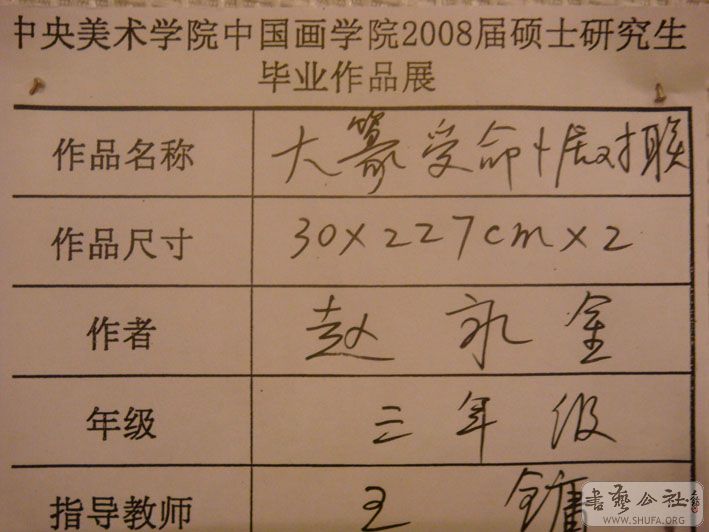 中央美术学院中国画学院2008届硕士研究生
毕业作品展
作品名称 大篆受命 对联
作品尺寸 30×227cm×2
作者 赵永金
年级 三年级
指导教师 王镛
書艺公社
WWW.SHUFA.ORG